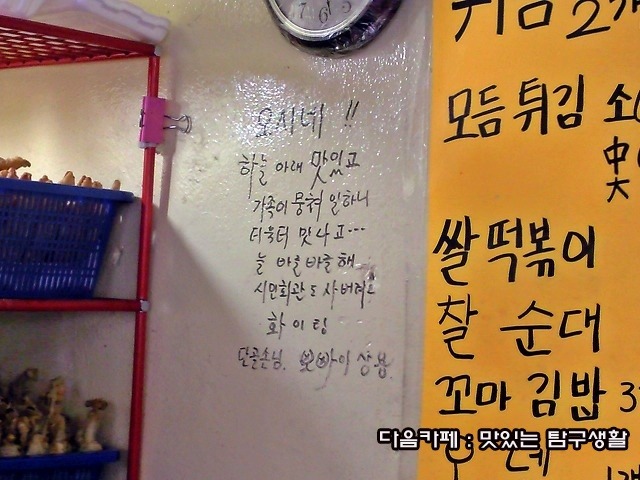 7 6 5
오시네 !!
하늘 아래 맛있고
가족이 뭉쳐 일하니
더욱더 맛나고...
늘 바글바글해
시민회관도 사버려~
화이팅
단골손님. 뽀빠이 상용.
튀김 2개
모듬튀김
中
大
쌀떡볶이
찰 순대
꼬마김밥 3
오뎅
다음카페 : 맛있는 탐구생활